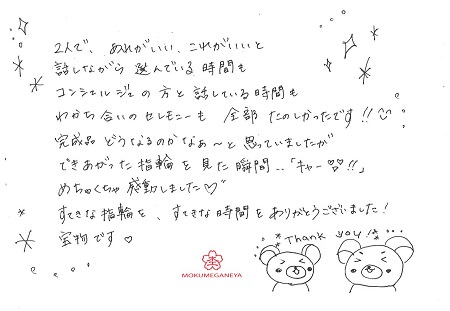 2人で、あれがいい、これがいいと
話しながら 選んでいる時間も
コンシェルジュの方と話している時間も
わかち合いのセレモニーも 全部 たのしかったです!!
完成品 どうなるのかなぁ〜と思っていましたが
できあがった指輪を見た瞬間‥「キャー♡♡!!」
めちゃくちゃ感動しました♡
すてきな指輪を、すてきな時間をありがとうございました!
宝物です♡
Thank you!
MOKUMEGANEYA